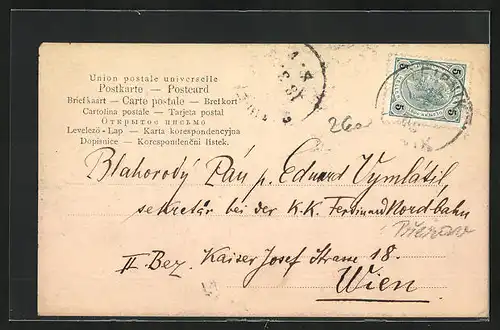 Union postale universelle
Postkarte — Postcard
Briefkaart — Carte postale — Brefkort
Cartolina postale — Tarjeta postal
Открытое письмо
Levelező-Lap — Karta korespondencyjna
Dopisnice — Korespondenční lístek.
5 5
5 5
26a
Blahorodý Pán p. Eduard Vymlátil,
sekretár bei der K.K. Ferdinand Nordbahn
II. Bez. Kaiser Josef Strasse 18.
Wien